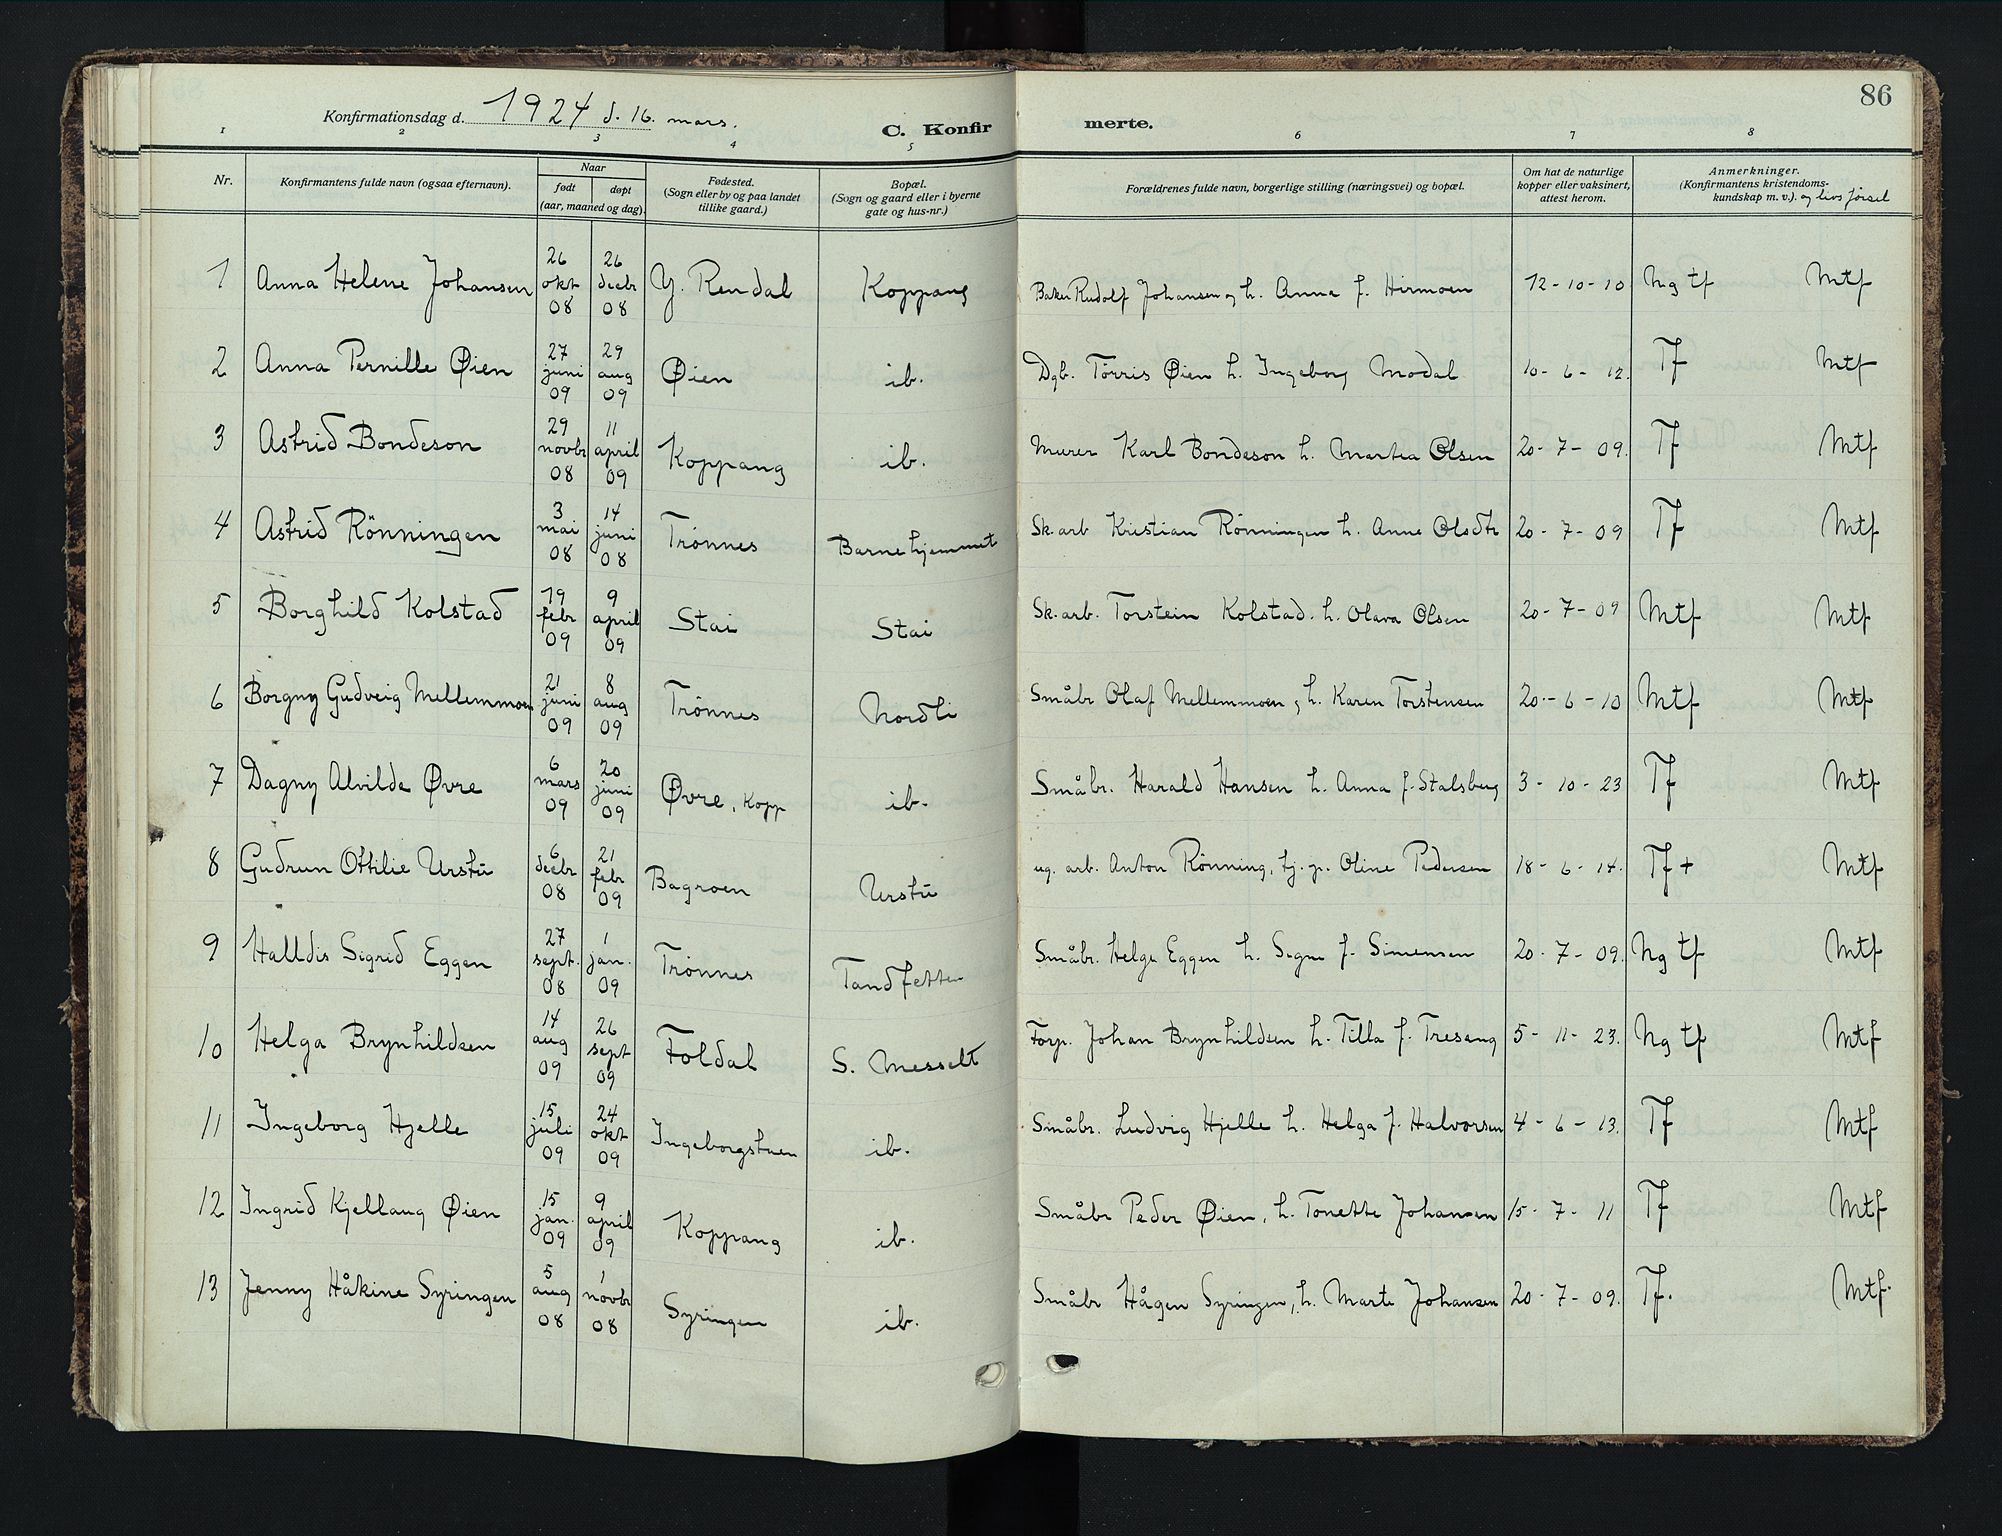 86
Konfirmationsdag d. 1924 d. 16. mars.
C. Konfirmerte.
1 2 3 4 5 6 7 8
Nr. Konfirmantens fulde navn (ogsaa efternavn). Naar født døpt (aar, maaned og dag). Fødested. (Sogn eller by og paa landet tillike gaard.) Bopæl. (Sogn og gaard eller i byerne gate og hus-nr.) Forældrenes fulde navn, borgerlige stilling (næringsvei) og bopæl. Om hat de naturlige kopper eller vaksinert, attest herom. Anmerkninger. (Konfirmantens kristendomskundskap m. v.). og livsførsel
1 Anna Helene Johansen 26 okt 08 26 decbr 08 Y. Rendal Koppang Baker Rudolf Johansen og h. Anna f. Hirmoen 12-10-10 Mg tf Mtf
2 Anna Pernille Øien 27 juni 09 29 aug 09 Øien ib. Dgb. Tørris Øien h. Ingeborg Modal 10-6-12. Tf Mtf
3 Astrid Bondeson 29 novbr 08 11 april 09 Koppang ib. Murer Karl Bondeson h. Martea Olsen 20-7-09. Tf Mtf
4 Astrid Rönningen 3 mai 08 14 juni 08 Trønnes Barnehjemmet Sk. arb Kristian Rønningen h. Anne Olsdtr 20-7-09 Tf Mtf
5 Borghild Kolstad 19 febr 09 9 april 09 Stai Stai Sk. arb. Torstein Kolstad. h. Olava Olsen 20-7-09 Mtf Mtf
6 Borgny Gudveig Mellemmoen 21 juni 09 8 aug 09 Trønnes Nordli Småbr Olaf Mellemmoen, h. Karen Torstensen 20-6-10 Mtf Mtf
7 Dagny Alvilde Øvre 6 mars 09 20 juni 09 Øvre, Kopp ib. Småbr. Harald Hansen h. Anna f. Stalsberg 3-10-23 Tf Mtf
8 Gudrun Ottilie Urstu 6 decbr 08 21 febr 09 Bagroen Urstu ug. arb. Anton Rønning, tj. p. Oline Pedersen 18-6-14. Tf+ Mtf
9 Halldis Sigrid Eggen 27 sept. 08 1 jan. 09 Trønnes Tandfetten Småbr. Helge Eggen h. Signe f. Simensen 20-7-09. Ng tf Mtf
10 Helga Brynhildsen 14 aug 09 26 sept 09 Foldal S. Messelt Forp. Johan Brynhildsen h. Tilla f. Treseng 5-11-23. Ng tf Mtf
11 Ingeborg Hjelle 15 juli 09 24 okt 09 Ingeborgstuen ib. Småbr. Ludvig Hjelle h. Helga f. Halvorsen 4-6-13. Tf Mtf
12 Ingrid Kjellaug Øien 15 jan. 09 9 april 09 Koppang ib. Småbr Peder Øien, h. Tonette Johansen 15-7-11 Tf Mtf
13 Jenny Håkine Syringen 5 aug 08 1 novbr 08 Syringen ib. Småbr Hågen Syringen, h. Marte Johansen 20-7-09. Tf. Mtf.